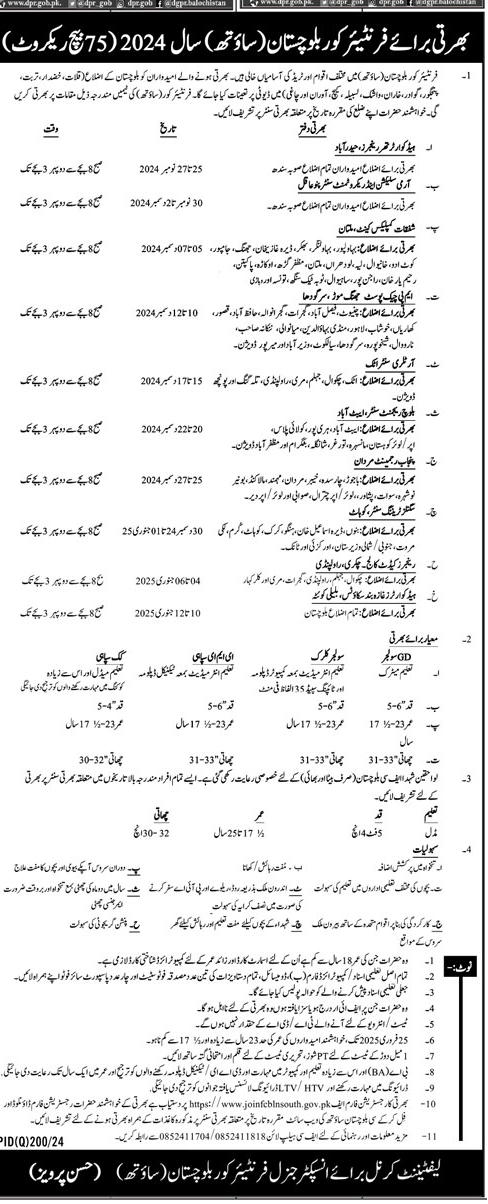 www.dpr.gob.pk. dpr_gob dpr.gob @dgpr.balochistan www.dpr.gob.pk. dpr_gob dpr.gob @dgpr.balochistan
بھرتی برائے فرنٹیئر کور بلوچستان (ساؤتھ) سال 2024 (75 بیچ ریکروٹ)
1- فرنٹیئر کور بلوچستان (ساؤتھ) میں مختلف اقوام اور ٹریڈ کی آسامیاں خالی ہیں۔ بھرتی ہونے والے امیدواران کو بلوچستان کے اضلاع (قلات، خضدار، تربت،
پنجگور، گوادر، خاران، واشک، لسبیلہ، کیچ، آوران اور چاغی) میں ڈیوٹی پر تعینات کیا جائے گا۔ فرنٹیئر کور (ساؤتھ) کی ٹیمیں مندرجہ ذیل مقامات پر بھرتی کریں
گی۔ خواہشمند حضرات اپنے ضلع کی مقررہ تاریخ پر متعلقہ بھرتی سنٹر پر تشریف لائیں۔
بھرتی دفتر تاریخ وقت
ا۔ ہیڈ کوارٹر تھر رینجرز، حیدرآباد
بھرتی برائے اضلاع امیدواران تمام اضلاع صوبہ سندھ 25 تا 27 نومبر 2024 صبح 8 بجے سے دوپہر 3 بجے تک
ب۔ آرمی سلیکشن اینڈ ریکروٹمنٹ سنٹر پنو عاقل
بھرتی برائے اضلاع امیدواران تمام اضلاع صوبہ سندھ۔ 30 نومبر تا 2 دسمبر 2024 صبح 8 بجے سے دوپہر 3 بجے تک
پ۔ شفقات کمپلیکس کینٹ، ملتان
بھرتی برائے اضلاع: بہاولپور، بہاولنگر، بھکر، ڈیرہ غازیخان، جھنگ، جامپور، 05 تا 07 دسمبر 2024 صبح 8 بجے سے دوپہر 3 بجے تک
کوٹ ادو، خانیوال، لیہ، لودھراں، ملتان، مظفر گڑھ، اوکاڑہ، پاکپتن،
رحیم یار خان، راجن پور، ساہیوال، ٹوبہ ٹیک سنگھ، تونسہ اور وہاڑی
ت۔ ایم پی چیک پوسٹ جھنگ موڑ، سرگودھا
بھرتی برائے اضلاع: چنیوٹ، فیصل آباد، گجرات، گجرانوالہ، حافظ آباد، قصور، 10 تا 12 دسمبر 2024 صبح 8 بجے سے دوپہر 3 بجے تک
کھاریاں، خوشاب، لاہور، منڈی بہاؤالدین، میانوالی، ننکانہ صاحب،
نارووال، شیخوپورہ، سرگودھا، سیالکوٹ، وزیر آباد اور میر پور ڈویژن۔
ٹ۔ آرٹلری سنٹر اٹک
بھرتی برائے اضلاع: اٹک، چکوال، جہلم، مری، راولپنڈی، تلہ گنگ اور پونچھ 15 تا 17 دسمبر 2024 صبح 8 بجے سے دوپہر 3 بجے تک
ڈویژن۔
ث۔ بلوچ رجمنٹ سنٹر، ایبٹ آباد
بھرتی برائے اضلاع: ایبٹ آباد، ہری پور، کولائی پلاس، 20 تا 22 دسمبر 2024 صبح 8 بجے سے دوپہر 3 بجے تک
اپر/لوئر کوہستان، مانسہرہ، تورغر، شانگلہ، بٹگرام اور مظفر آباد ڈویژن۔
ج۔ پنجاب رجمنٹ مردان
بھرتی برائے اضلاع: باجوڑ، چارسدہ، خیبر، مردان، مہمند، مالاکنڈ، بونیر 25 تا 27 دسمبر 2024 صبح 8 بجے سے دوپہر 3 بجے تک
نوشہرہ، سوات، پشاور، لوئر/اپر چترال، صوابی اور لوئر/اپر دیر۔
چ۔ سگنلز ٹریننگ سنٹر، کوہاٹ
بھرتی برائے اضلاع: بنوں، ڈیرہ اسماعیل خان، ہنگو، کرک، کوہاٹ، کرم، لکی 30 دسمبر 24 تا 01 جنوری 25 صبح 8 بجے سے دوپہر 3 بجے تک
مروت، جنوبی/شمالی وزیرستان، اورکزئی اور ٹانک۔
ح۔ رینجرز کیڈٹ کالج، چکری، راولپنڈی
بھرتی برائے اضلاع: چکوال، جہلم، راولپنڈی، گجرات، مری اور کلر کہار 04 تا 06 جنوری 2025 صبح 8 بجے سے دوپہر 3 بجے تک
خ۔ ہیڈ کوارٹرز غازہ بند سکاؤٹس، بلیلی کوئٹہ
بھرتی برائے اضلاع: تمام اضلاع بلوچستان 10 تا 12 جنوری 2025 صبح 8 بجے سے دوپہر 3 بجے تک
2- معیار برائے بھرتی
GD سولجر سولجر کلرک ای ایم ای سپاہی کک سپاہی
ا۔ تعلیم میٹرک تعلیم انٹرمیڈیٹ بمعہ کمپیوٹر ڈپلومہ تعلیم انٹرمیڈیٹ بمعہ ٹیکنیکل ڈپلومہ تعلیم مڈل اور اس سے زیادہ
اور ٹائپنگ سپیڈ 35 الفاظ فی منٹ کوکنگ میں مہارت رکھنے والوں کو ترجیح دی جائیگی
ب۔ قد"6-5 قد"6-5 قد"6-5 قد"4-5
پ۔ عمر 23-½ 17 عمر 23-½ 17 سال عمر 23-½ 17 سال عمر 23-½ 17 سال
سال
ت۔ چھاتی "33-31 چھاتی "33-31 چھاتی "33-31 چھاتی "32-30
3- لواحقین شہدا ایف سی بلوچستان (صرف بیٹا اور بھائی) کے لئے خصوصی رعایت رکھی گئی ہے۔ ایسے تمام افراد مندرجہ بالا تاریخوں میں متعلقہ بھرتی سنٹر پر بھرتی
کے لئے تشریف لائیں۔
تعلیم قد عمر چھاتی
مڈل 5 فٹ 4 انچ ½ 17 تا 25 سال 32-30 انچ
4- سہولیات
ا۔ تنخواہ میں پرکشش اضافہ ب۔ مفت رہائش/کھانا پ۔ دوران سروس آپکے بیوی اور بچوں کا مفت علاج
ت۔ بچوں کی مختلف تعلیمی اداروں میں تعلیم کی سہولت ٹ۔ اندرون ملک بذریعہ روڈ، ریلوے اور پی آئی اے سفر کرنے ث۔ سال میں دو ماہ کی چھٹی بمع تنخواہ اور بروقت ضرورت
کی صورت میں نصف کرایہ کی سہولت ایمرجنسی چھٹی
ج۔ کارکردگی کی بنا پر اقوام متحدہ کے ساتھ بیرون ملک چ۔ شہداء کے بچوں کیلئے مفت تعلیم اور رہائش کیلئے گھر ح۔ پنشن گریجوٹی کی سہولت
سروس کے مواقع
نوٹ:-
1- وہ حضرات جن کی عمر 18 سال سے کم ہے اُن کے لئے اسمارٹ کارڈ اور زائد عمر کے لئے کمپیوٹرائزڈ شناختی کارڈ لازمی ہے۔
2- تمام اصل تعلیمی اسناد/کمپیوٹرائزڈ فارم (ب)، ڈومیسائل، تمام دستاویزات کی تین عدد مصدقہ فوٹوسٹیٹ اور چار عدد پاسپورٹ سائز فوٹو اپنے ہمراہ لائیں۔
3- جعلی تعلیمی اسناد پیش کرنے والے کو حوالہ پولیس کیا جائے گا۔
4- وہ حضرات جن پر ایف آئی آر درج ہو یا سزا یافتہ ہوں بھرتی کے لئے نااہل ہو گا۔
5- ٹیسٹ/انٹرویو کے لئے آنے والے ٹی اے/ڈی اے کے حقدار نہیں ہوں گے۔
6- 25 فروری 2025 تک، خواہشمند امیدواروں کی عمر کی حد 23 سال سے زیادہ اور ½ 17 سے کم نا ہو۔
7- 1 میل دوڑ کے ٹیسٹ کے لئے PT شوز، تحریری ٹیسٹ کے لئے قلم اور امتحانی گتہ ساتھ لائیں۔
8- بی اے (BA) اور اس سے زیادہ تعلیم اور کمپیوٹر میں مہارت اور ڈی اے ای/ٹیکنیکل ڈپلومہ رکھنے والوں کو ترجیح اور عمر میں ایک سال تک رعایت دی جائیگی۔
9- ڈرائیونگ میں مہارت رکھنے اور LTV/HTV ڈرائیونگ لائسنس یافتہ جوانوں کو ترجیح دی جائیگی۔
10- بھرتی کا رجسٹریشن فارم ایف https://www.joinfcblnsouth.gov.pk پر دستیاب ہے بھرتی کے خواہشمند حضرات رجسٹریشن فارم ڈاؤنلوڈ اور
فل کر کے سی بلوچستان کی ویب سائٹ مقررہ تاریخ پر متعلقہ بھرتی سنٹر پر مذکورہ کاغذات کے ہمراہ بھرتی ہونے کے لئے تشریف لائیں۔
11- مزید معلومات اور رہنمائی کے لئے ایف سی ہیلپ لائن 0852411818/0852411704 سے رابطہ کریں۔
PID(Q)200/24
لیفٹیننٹ کرنل برائے انسپکٹر جنرل فرنٹیئر کور بلوچستان (ساؤتھ) (حسن پرویز)